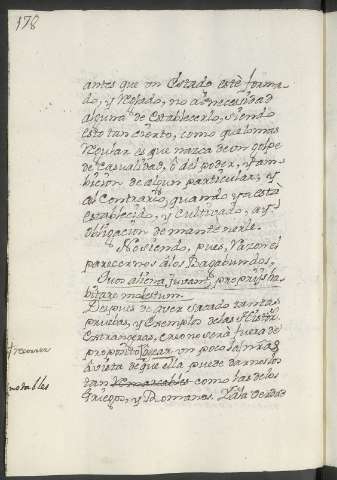 178
antes que un Estado esté forma-
do, y Reglado, no ai necesidad
alguna de establecerlo, siendo
esto tan cierto, como que lo mas
Regular es que nazca de un golpe
de Casualidad, ô del poder, y am-
bicion de algun particular, y
al Contrario, quando ya está
establecido, y cultivado, ay
obligacion de mantenerle.
No siendo, pues, Razon el
parecernos a los Vagabundos,
Quos aliena juvant, proprijs ha-
bitare molestum.
Despues de aver sacado tantas
pruebas, y exemplos de las Histôr.
Estrangeras, creo no será fuera de
proposito tocar un poco la nrã
recurrir
a vista de que ella puede darnoslos
tan remarcables como las de los
notables
Griegos, y Romanos. La Verdad